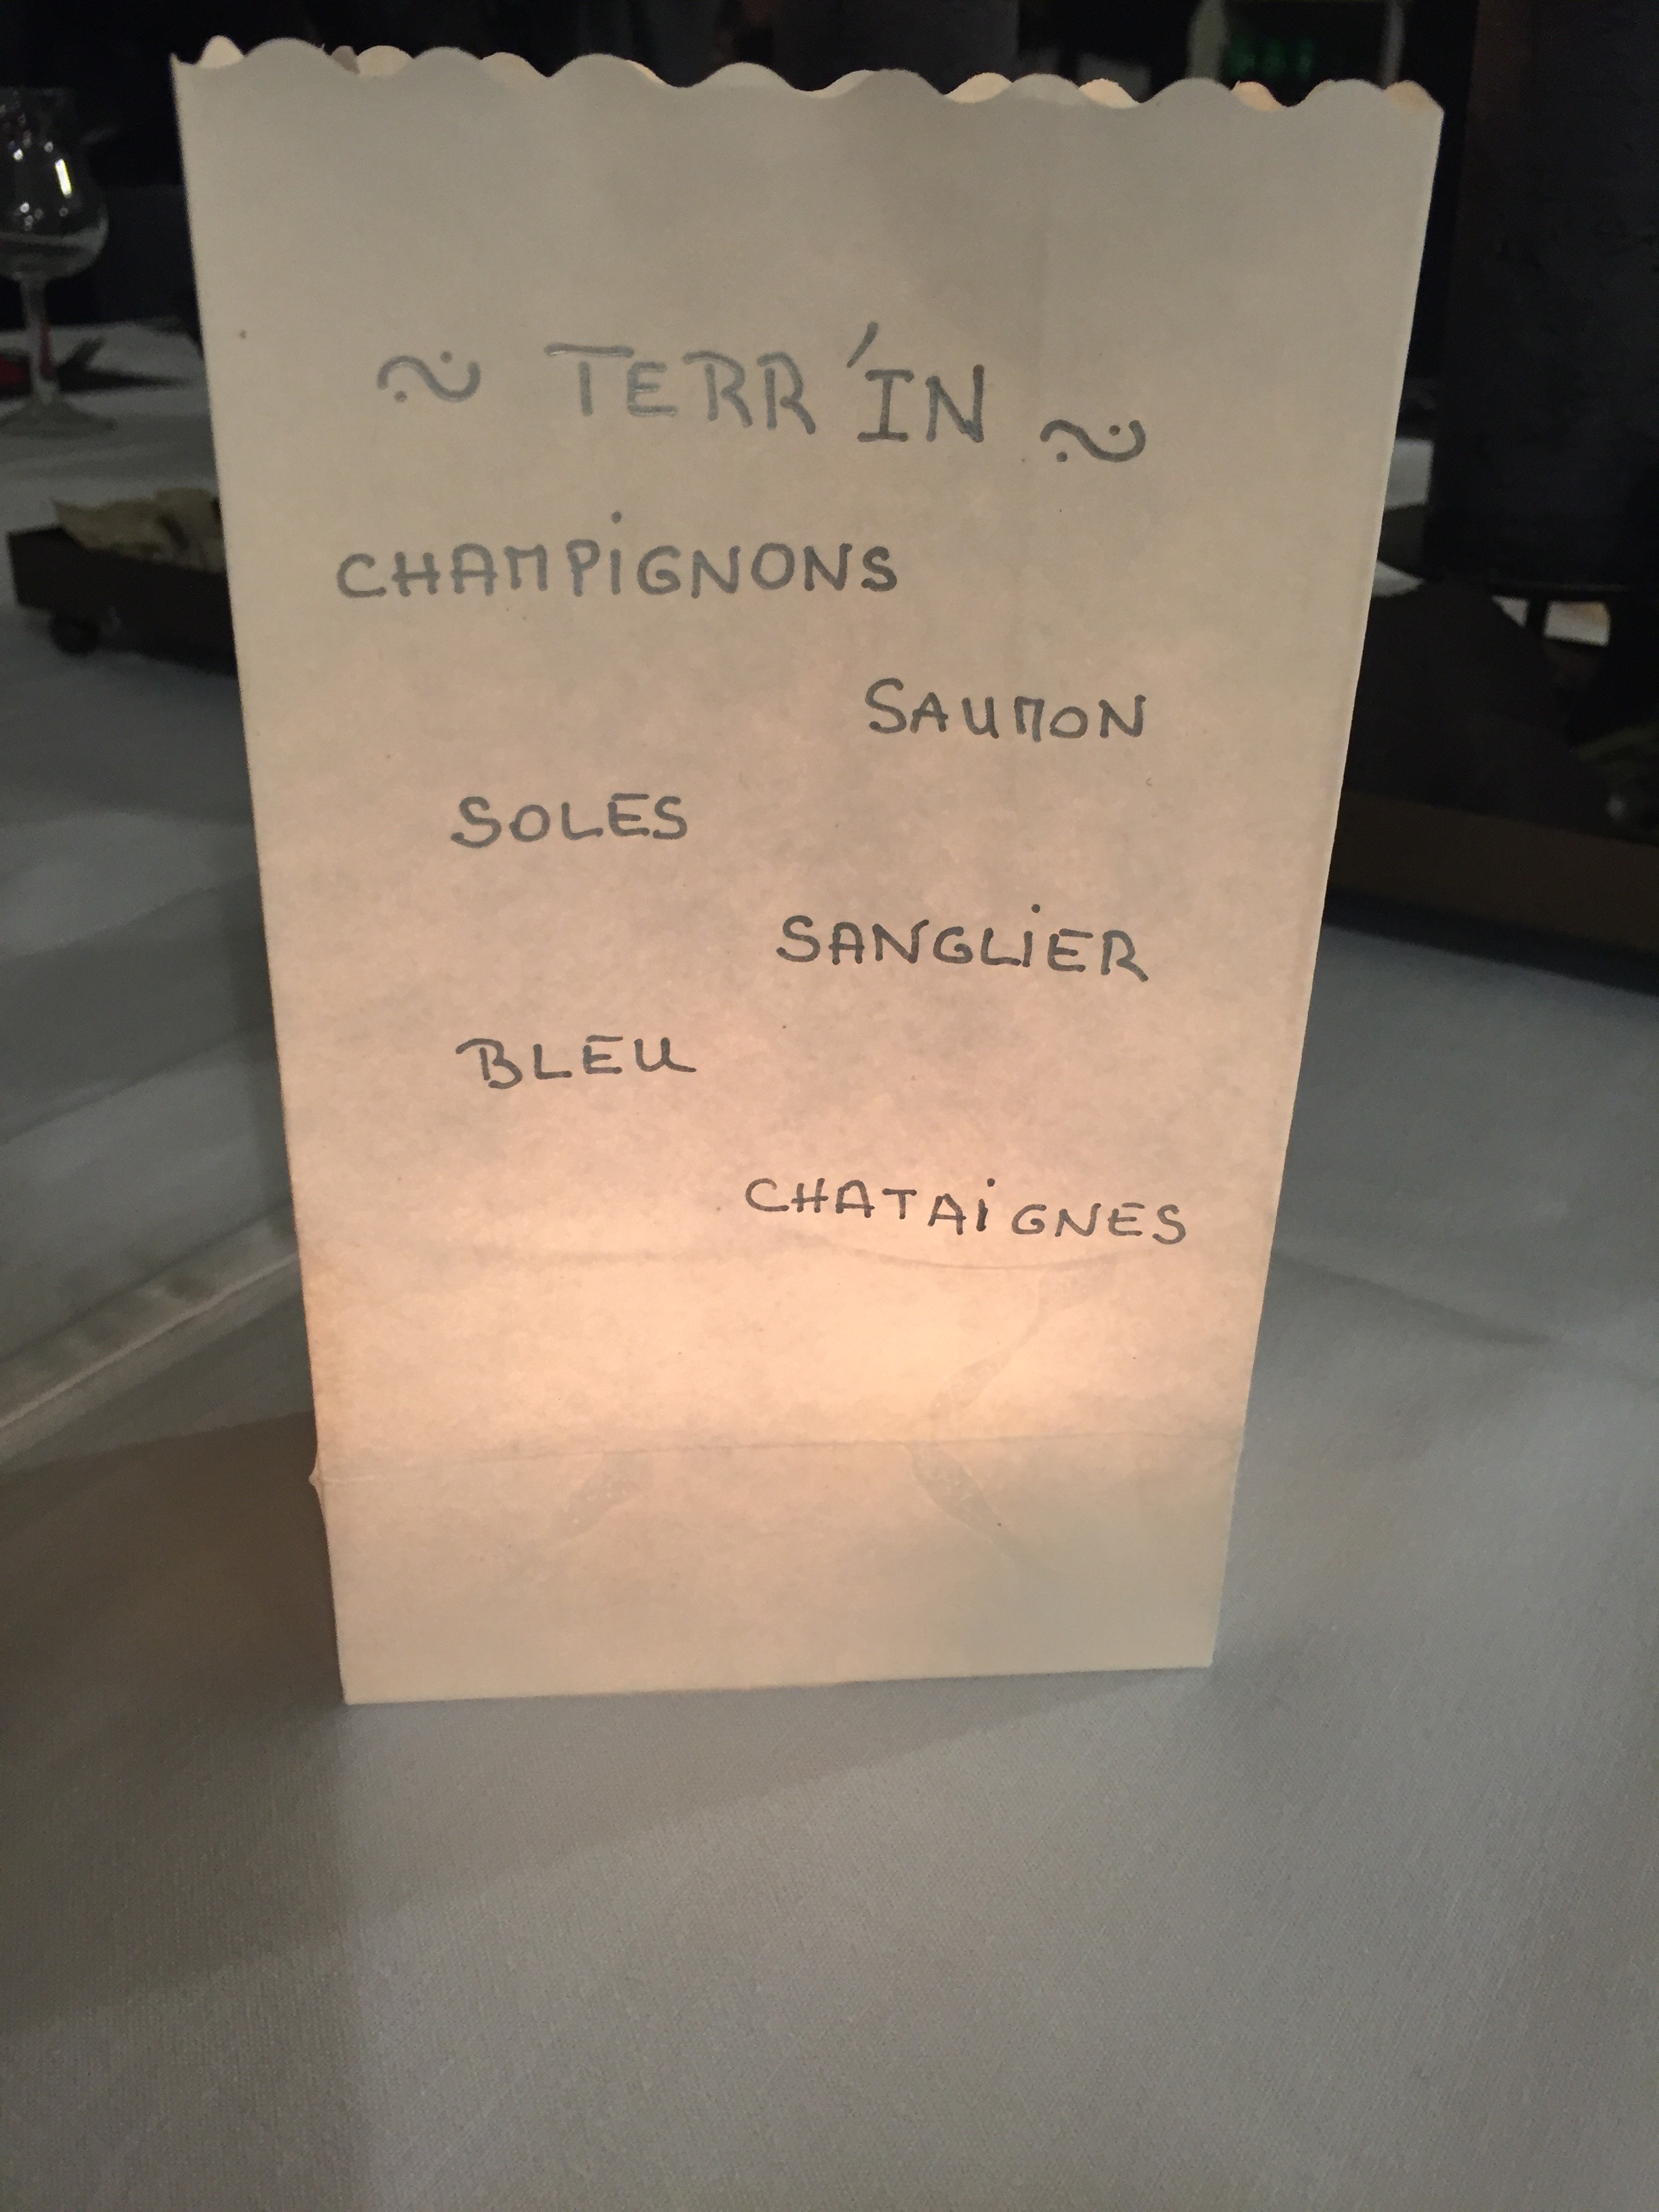 ~ TERR'IN ~
CHAMPIGNONS
SAUMON
SOLES
SANGLIER
BLEU
CHATAIGNES